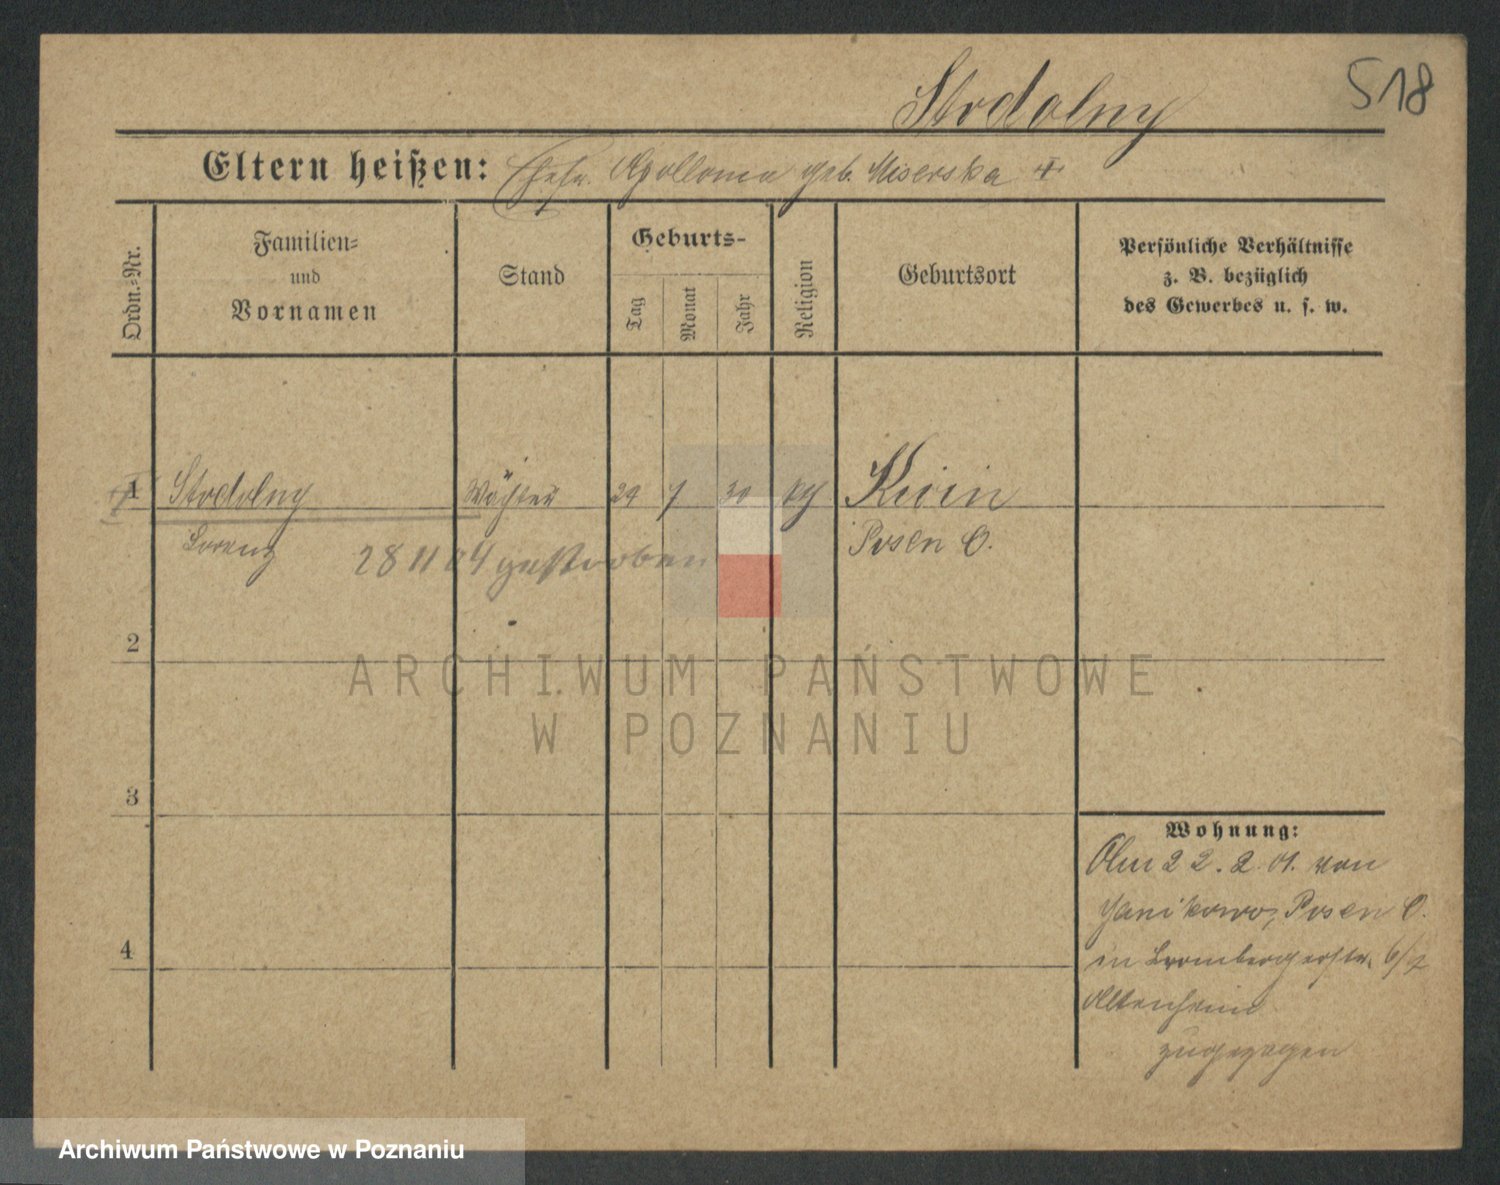 518
Stodolny
Eltern heißen: Ehefr. Apollonia geb. Miserska †
Ordn.-Nr.
Familien-
und
Vornamen
Stand
Geburts-
Tag
Monat
Jahr
Religion
Geburtsort
Persönliche Verhältnisse
z. B. bezüglich
des Gewerbes u. s. w.
1 Stodolny Wächter 29 7 30 kth Kicin
Lorenz Posen O.
28 11 04 gestorben
2
3
4
Wohnung:
Am 22.2.01. von
Janikowo, Posen O.
in Brombergerstr. 6/7
Altenheim
zugezogen
ARCHIWUM PAŃSTWOWE
W POZNANIU
Archiwum Państwowe w Poznaniu